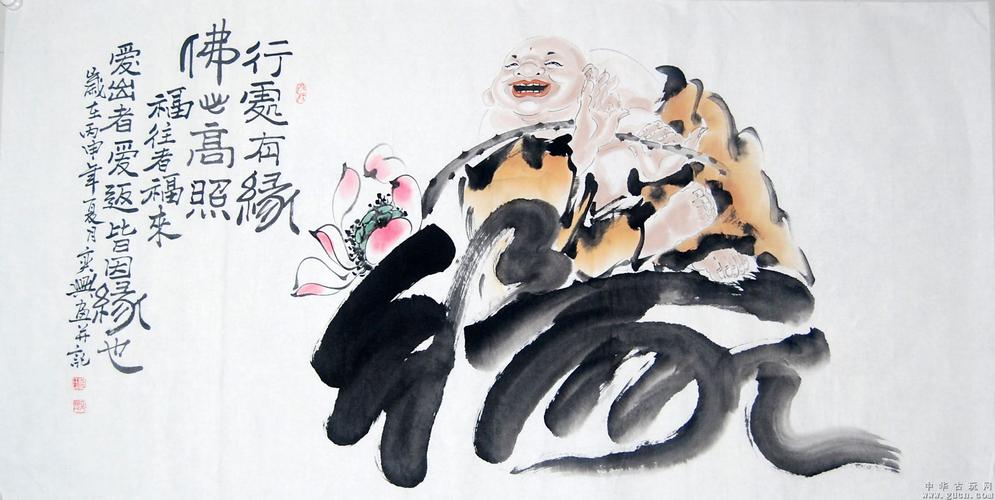 行處有緣
佛高照
福往者福來
愛出者愛返皆因緣也
歲在丙申年夏月奕興畫并記
中华古玩网
www.gucn.com